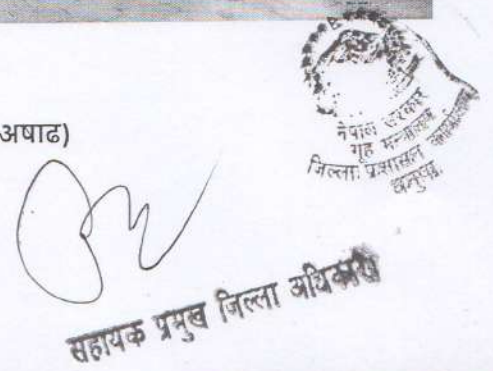 अषाढ)
नेपाल सरकार
गृह मन्त्रालय
जिल्ला प्रशासन कार्यालय
धनुषा
सहायक प्रमुख जिल्ला अधिकारी